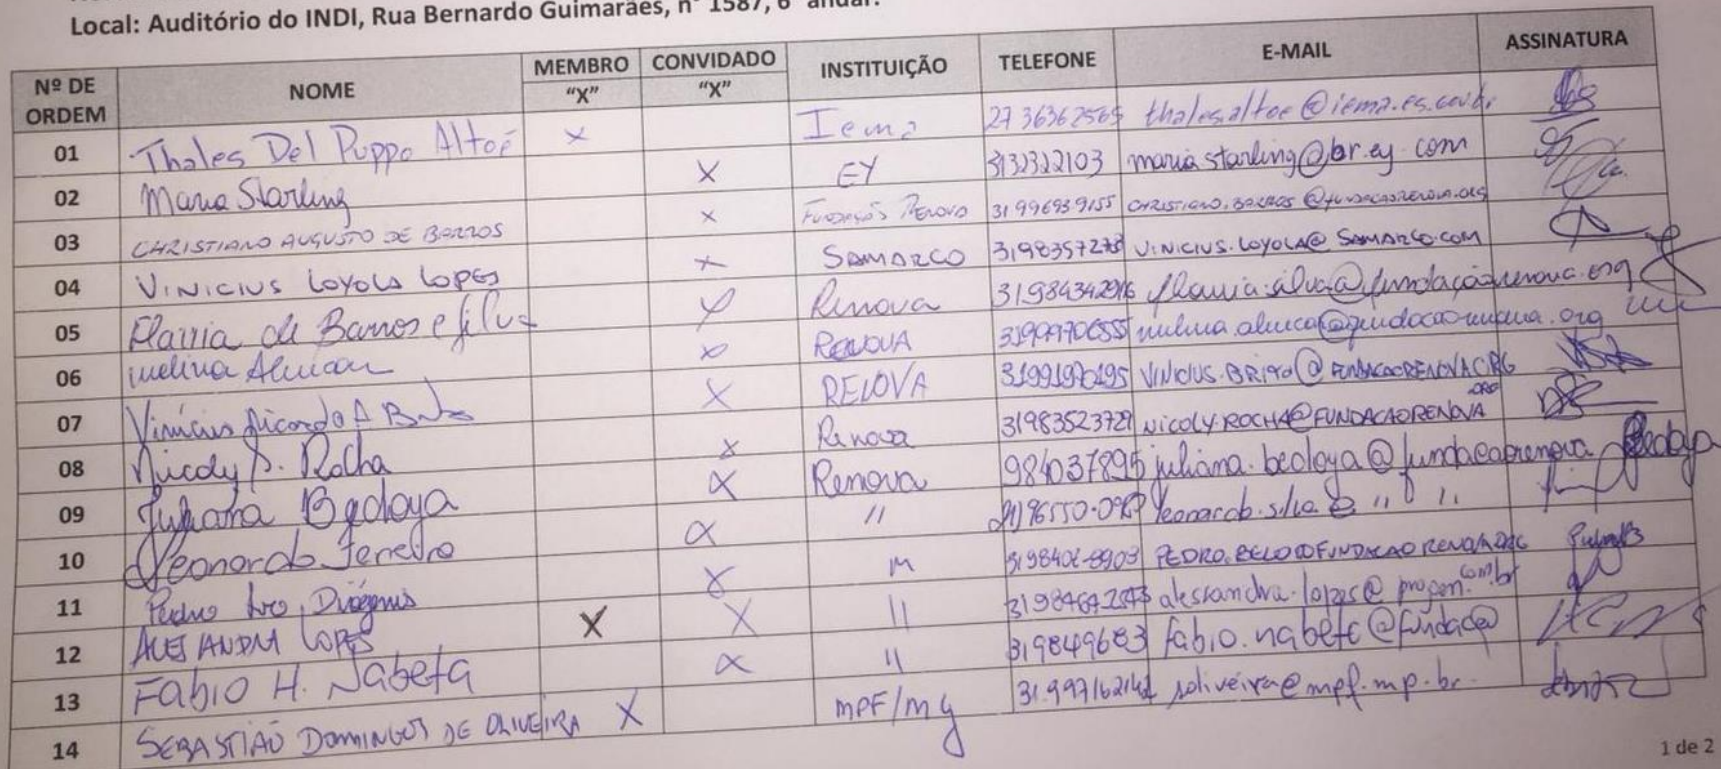 Local: Auditório do INDI, Rua Bernardo Guimarães, nº 1587, 6º andar.
Nº DE ORDEM NOME MEMBRO "X" CONVIDADO "X" INSTITUIÇÃO TELEFONE E-MAIL ASSINATURA
01 Thales Del Puppo Altoé X Iema 27 36362565 thales.altoe@iema.es.gov.br
02 Maria Starling X EY 3132322103 maria.starling@br.ey.com
03 CHRISTIANO AUGUSTO DE BARROS X FUNDAÇÃO RENOVA 31 996939155 CHRISTIANO.BARROS@FUNDACAORENOVA.ORG
04 VINICIUS LOYOLA LOPES X SAMARCO VINICIUS.LOYOLA@SAMARCO.COM
05 Flavia de Barros e Silva X Renova flavia.silva@fundaçãorenova.org
06 melina Alencar X RENOVA
07 Vinícius Ricardo A X RENOVA VINICIUS.BRITO@FUNDACAORENOVA.ORG
08 Nicoly S. Rocha X Renova 31983523729 NICOLY.ROCHA@FUNDACAORENOVA.ORG
09 Juliana Bedoya X Renova 984037895 juliana.bedoya@fundacaorenova Bedoya
10 Leonardo Ferreira X " " "
11 Pedro Ivo Diógenes X " PEDRO.BELO@FUNDACAORENOVA.ORG
12 ALESSANDRA LOPES X X " alessandra.lopes@progen.com.br
13 Fabio H. Nabeta X " 319849683 fabio.nabeta@fundaca
14 SEBASTIÃO DOMINGOS DE OLIVEIRA X MPF/MG soliveira@mpf.mp.br
1 de 2